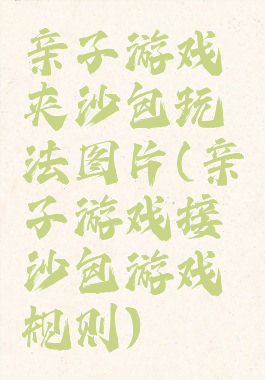 亲子游戏
夹沙包玩
法图片(亲
子游戏接
沙包游戏
规则)